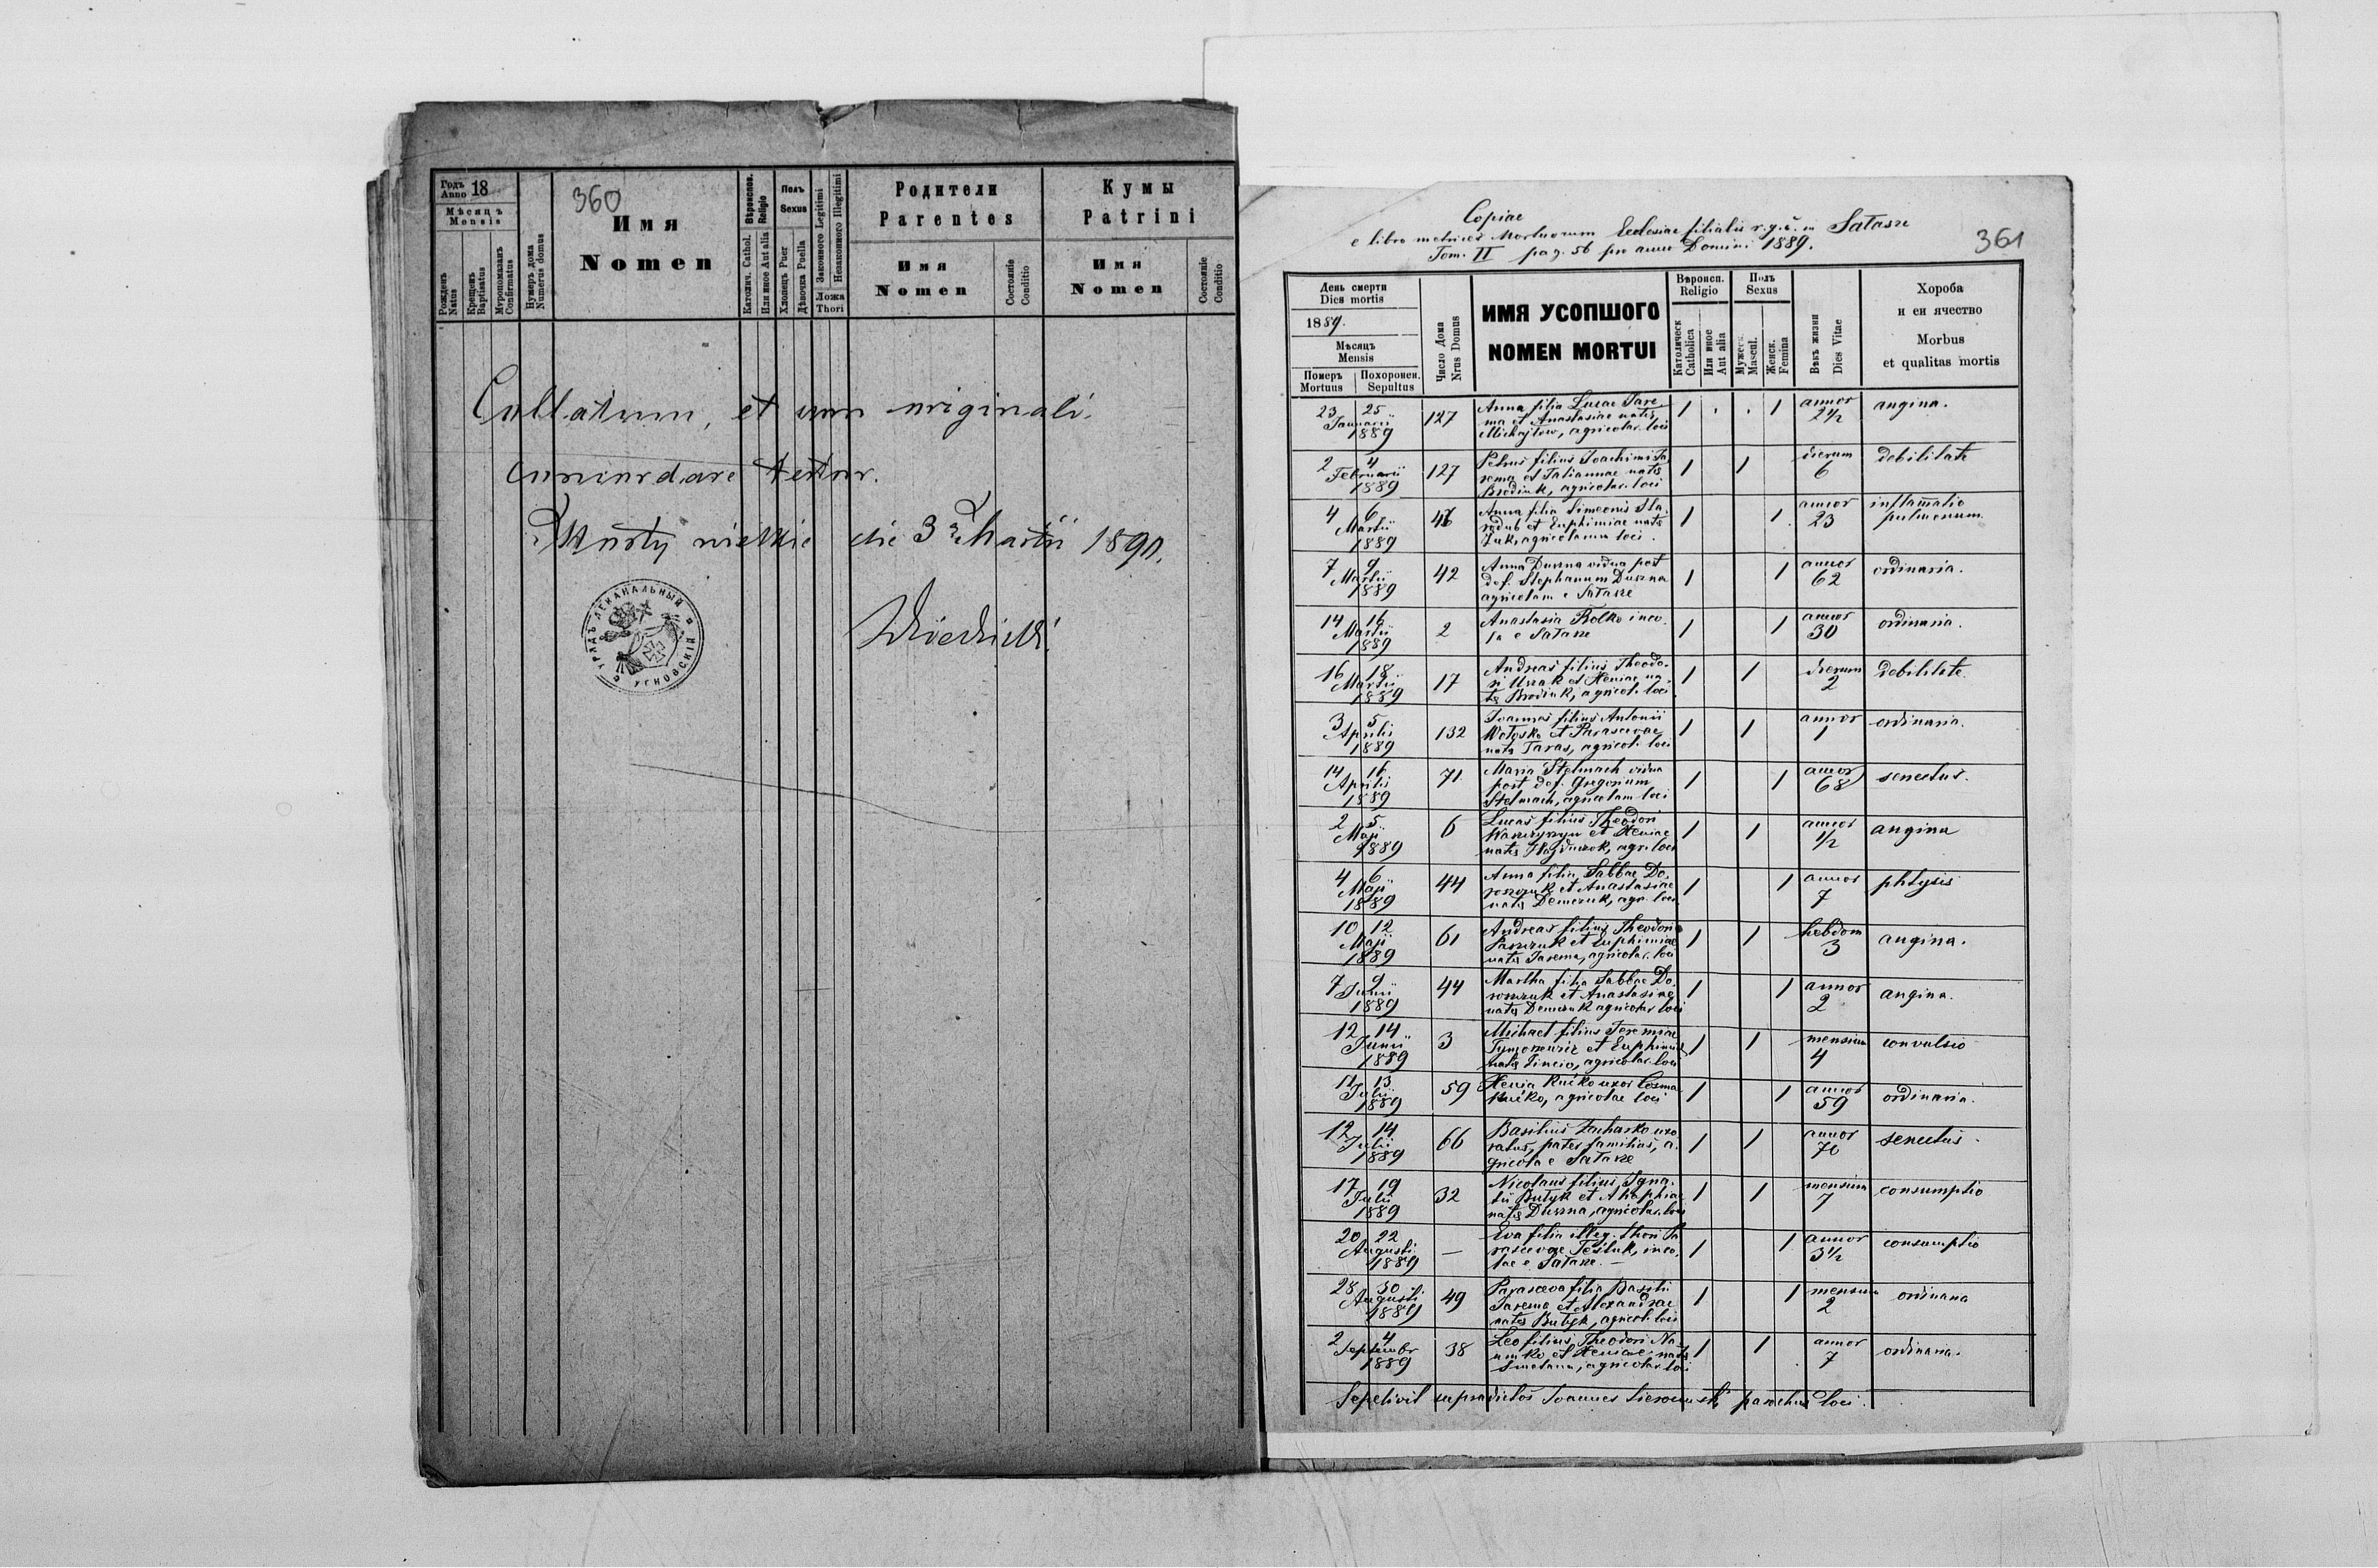 360
Годъ Anno 18
Мѣсяцъ
Mensis
Рожденъ Natus
Крещенъ Baptisatus
Муропомазанъ Confirmatus
Нумеръ дома
Numerus domus
Имя
Nomen
Вѣроиспов.
Religio
Католич. Cathol.
Или иное Aut alia
Полъ
Sexus
Хлопецъ Puer
Дѣвочка Puella
Законного Legitimi
Незаконного Illegitimi
Ложа
Thori
Родители
Parentes
Имя
Nomen
Состояніе
Conditio
Кумы
Patrini
Имя
Nomen
Состояніе
Conditio
Collatum, et cum originali
concordare testor.
die 3 Martii 1890.
УРЯДЪ ДЕКАНАЛЬНЫЙ УГНОВСКІЙ
361
Copiae
e libro metrices Mortuorum Ecclesiae filialis r.g.c. in Sataze
Tom. II pag. 56 pro anno Domini 1889.
День смерти
Dies mortis
1889.
Мѣсяцъ
Mensis
Померъ Mortuus
Похоронен. Sepultus
Число Дома
Nrus Domus
ИМЯ УСОПШОГО
NOMEN MORTUI
Вѣроисп.
Religio
Католическ Catholica
Или иное Aut alia
Полъ
Sexus
Мужеск. Mascul.
Женск. Femina
Вѣкъ жизни
Dies Vitae
Хороба
и еи ячество
Morbus
et qualitas mortis
23 25 Januarii 1889 127 Anna filia Lucae Jare
ma et Anastasiae natis
Michajlow, agricolar. loci 1 1 annor 2 1/2 angina.
2 4 Februarii 1889 127 Petrus filius Joachimi Ja
rema et Tatiannae natis
Brodiuk, agricolar. loci 1 1 dierum 6 debilitate
4 6 Martii 1889 Anna filia Simeonis
et Euphimiae natis
Juk, agricolarum loci. 1 1 annor 23 inflammatio
pulmonum
7 9 Martii 1889 42 Anna Duszna vidua post
def. Stephanum Duszna
agricolam e Sataze 1 1 annor 62 ordinaria.
14 16 Martii 1889 2 Anastasia Bolko inco
la e Sataze 1 1 annor 30 ordinaria.
16 18 Martii 1889 17 Andreas filius Theodo-
ri Uszak et Xeniae na-
tis Brodiuk, agricol. loci 1 1 dierum 2 debilitate.
3 5 Aprilis 1889 132 Joannes filius Antonii
Wotosko et Parascevae
natis Taras, agricol. loci 1 1 annor 1 ordinaria.
14 16 Aprilis 1889 71 Maria Stelmach vidua
post def. Gregorium
Stelmach, agricolam loci 1 1 annor 68 senectus.
2 5 Maji 1889 6 Lucas filius Theodori
et Xeniae
natis Hajduczok, agr. loci 1 1 annor 1/2 angina
4 6 Maji 1889 44 Anna filia Sabbae Do-
roszczuk et Anastasiae
natis Demczuk, agr. loci 1 1 annor 7 phtysis
10 12 Maji 1889 61 Andreas filius Theodori
et Euphimiae
natis Jarema, agricolar. loci 1 1 hebdom 3 angina.
7 9 Junii 1889 44 Martha filia Sabbae Do-
roszczuk et Anastasiae
natis Demczuk agricolar loci 1 1 annor 2 angina.
12 14 Junii 1889 3 Michael filius Jeremiae
et Euphimiae
natis agricolar. loci 1 1 mensium 4 convulsio
11 13 Julii 1889 59 Xenia Kućko uxor Cosmae
Kućko, agricolae loci 1 1 annor 59 ordinaria.
12 14 Julii 1889 66 Basilius Zacharko uxo
ratus, pater familias, a-
gricola e Sataze 1 1 annor 70 senectus.
17 19 Julii 1889 32 Nicolaus filius Igna-
tii Butyk et Ahaphiae
natis Duszna, agricolar. loci 1 1 mensium 7 consumptio
20 22 Augusti 1889 — Eva filia illeg. thori Pa
rascevae Tesluk, inco-
lae e Sataze. — 1 1 annor 3 1/2 consumptio
28 30 Augusti 1889 49 Parasceva filia Basilii
Jarema et Alexandrae
natis Butyk, agricol. loci 1 1 mensium 2 ordinaria
2 4 Septembr 1889 38 Leo filius Theodori Na-
umko et Xeniae natis
Smetana, agricolar. loci 1 1 annor 7 ordinaria.
Sepelivit supradictos Joannes parochus loci.